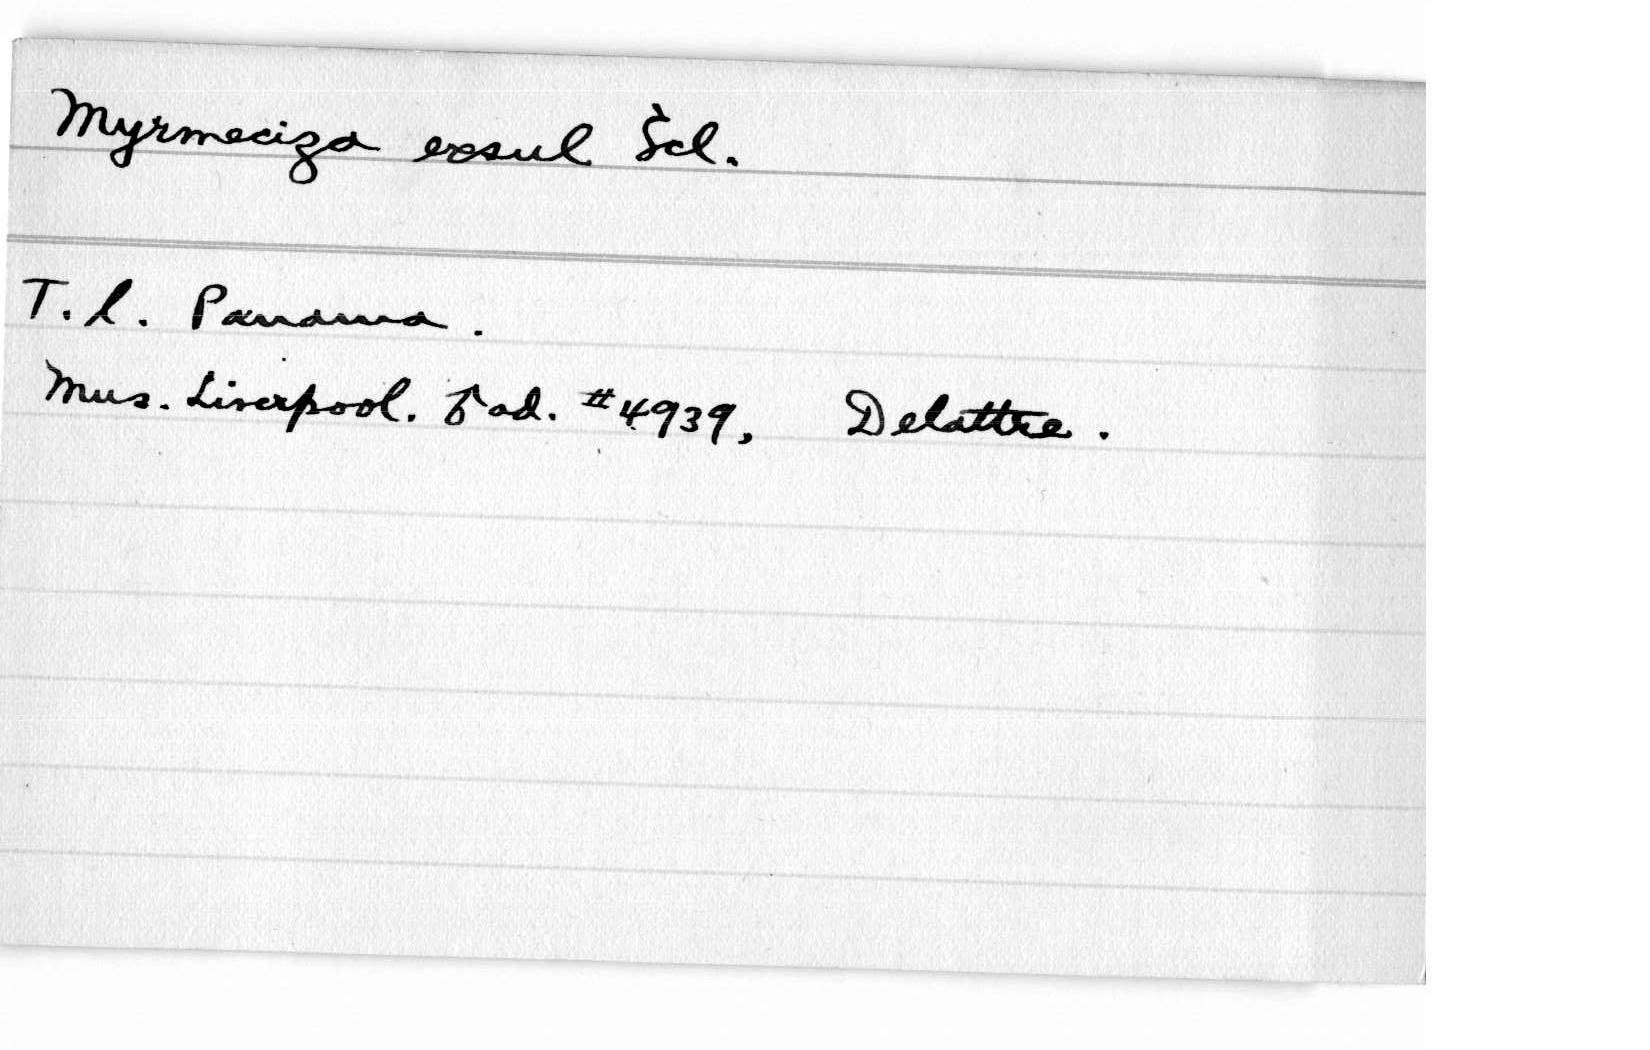 Myrmeciza exsul Scl.
T. l. Panama.
Mus. Liverpool. ♂ ad. #4939, Delattre.